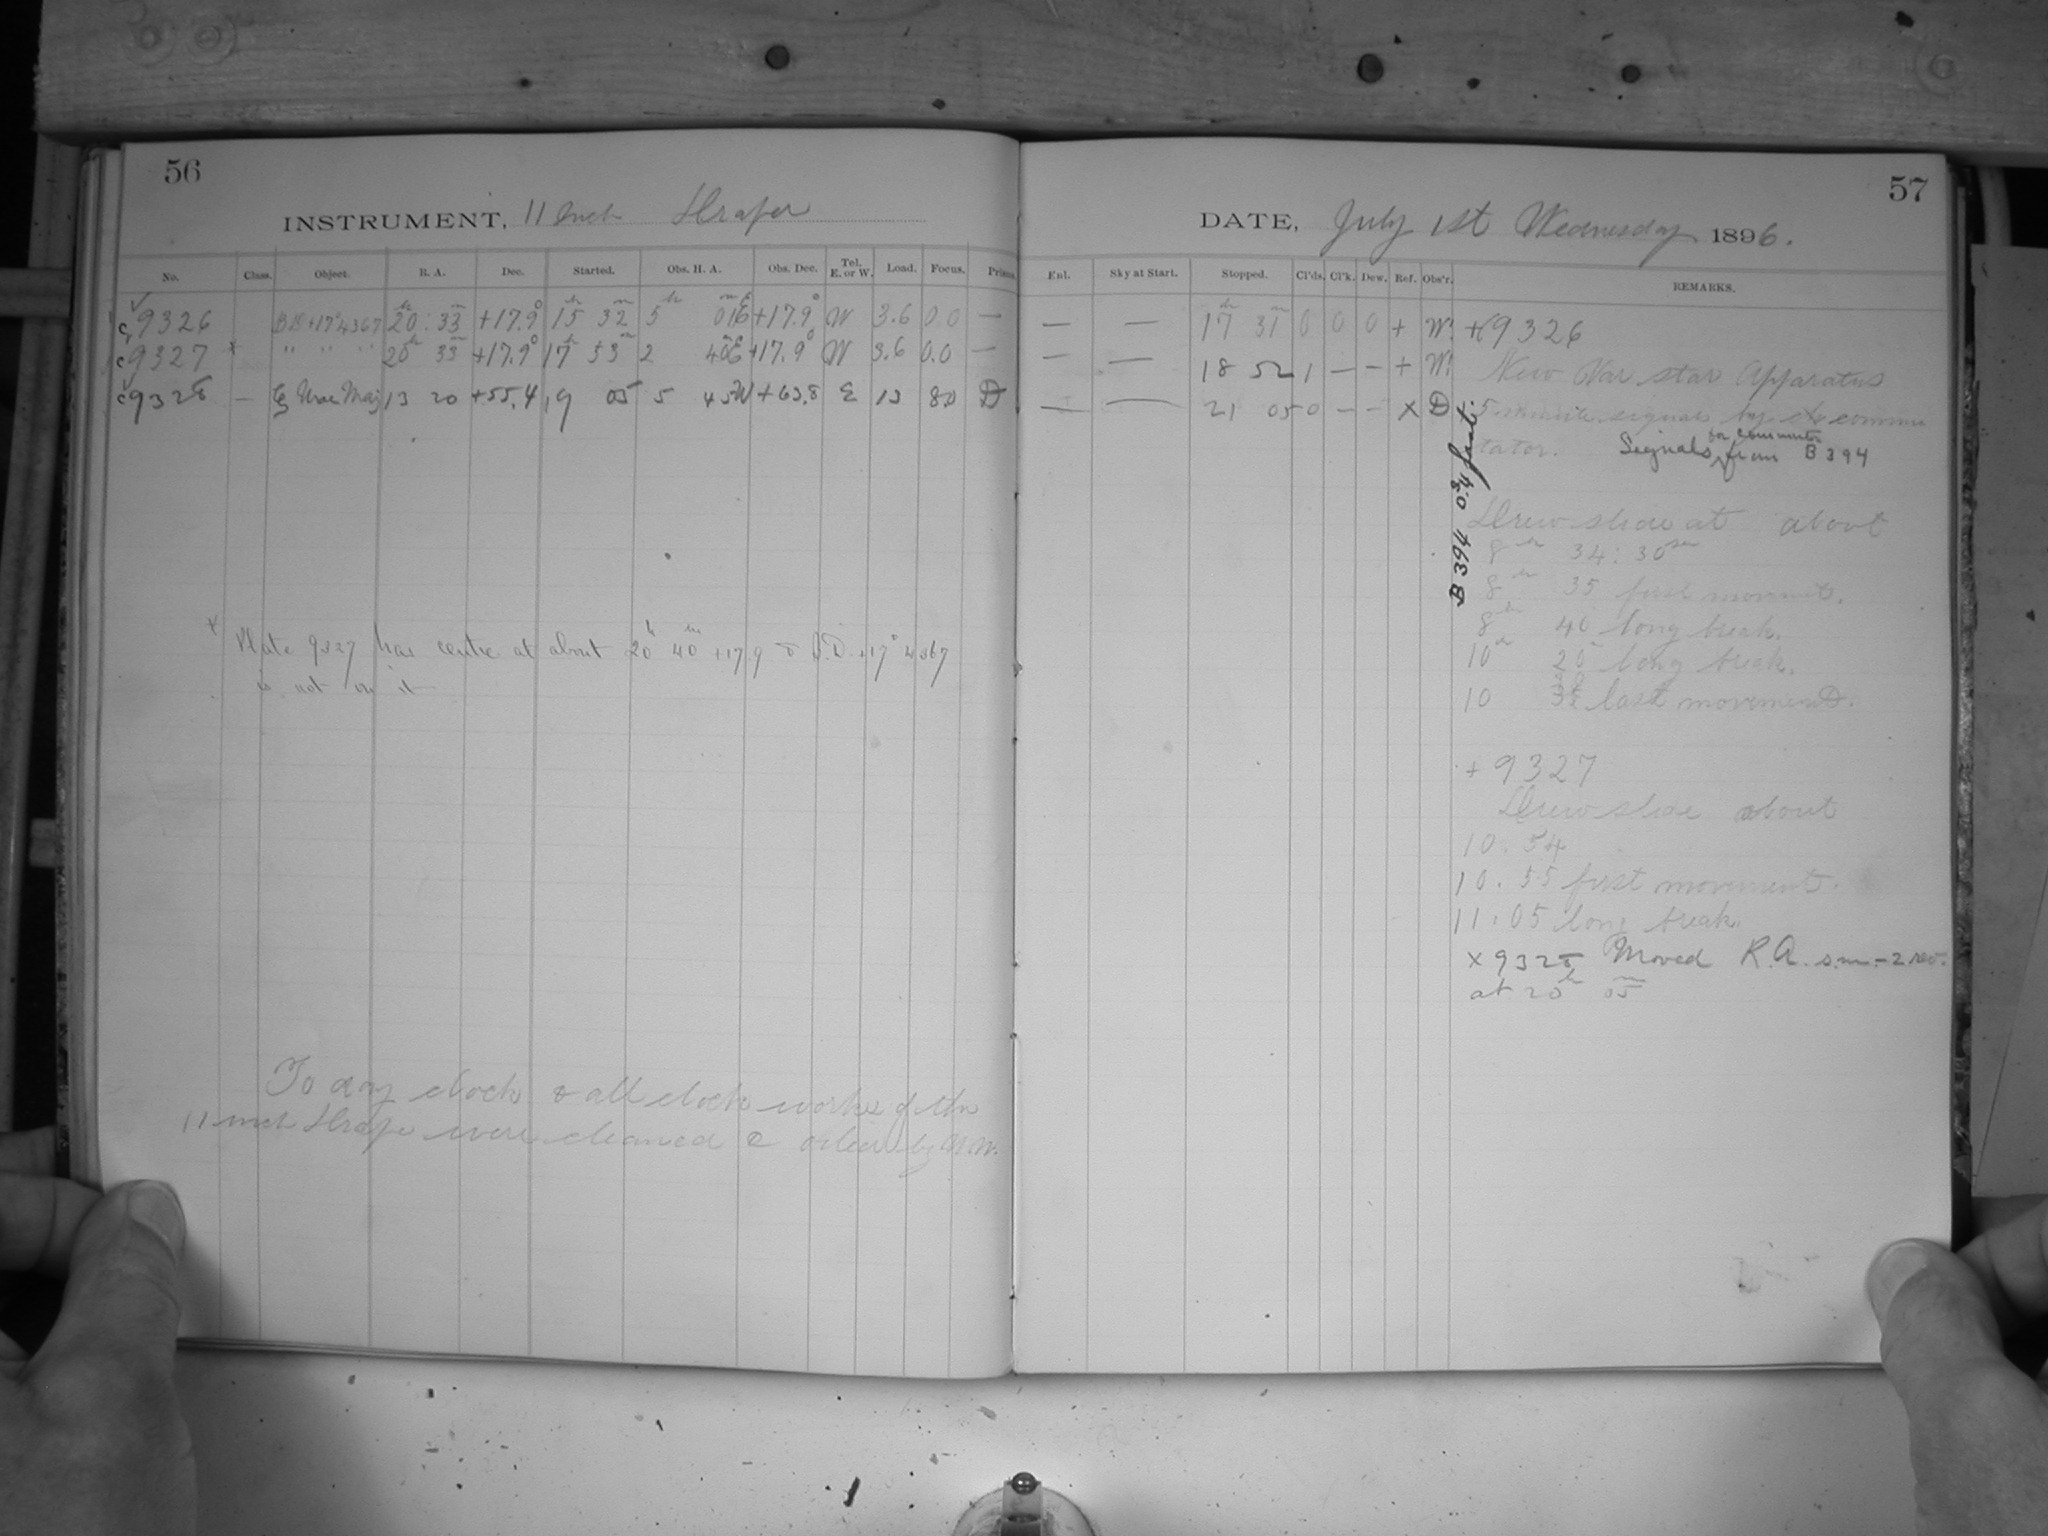 56
INSTRUMENT, 11 Inch Draper
No. Class. Object. R. A. Dec. Started. Obs. H. A. Obs. Dec. Tel. E. or W. Load. Focus. Prism.
C 9326 BD+17°4367 20h:33m +17.9° 15h 32m 5h 01mE +17.9° W 3.6 0.0 —
C 9327 x " " " 20h 33m +17.9° 17h 53m 2 40mE +17.9° W 3.6 0.0 —
C 9328 — ζ Ursae Maj 13 20 +55.4 19 05 5 45W +63.8 E 13 8.0 D
x Plate 9327 has centre at about 20h 40m +17.9 & B.D. +17° 4367
is not on it
To day clock & all clock works of the
11 inch Draper were cleaned & oiled by W.
57
DATE, July 1st Wednesday 1896.
Enl. Sky at Start. Stopped. Cl'ds. Cl'k. Dew. Ref. Obs'r. REMARKS.
— — 17h 31m 0 0 0 + W.
— — 18 52 1 — — + W.
— — 21 05 0 — — X D
+ 9326
New Var star Apparatus
5 minute signals by commu
tator. Signals for commutator from B 394
B 394 03
Drew slide at about
8h 34:30sec
8h 35 first movement.
8h 40 long break.
10h 20 long break.
10 last movement.
+ 9327
Drew slide about
10.54
10.55 first movement.
11:05 long break.
x 9328 Moved R.A. s.m. – 2 rev.
at 20h 05m